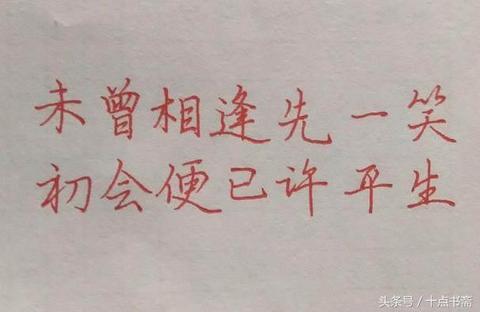 未曾相逢先一笑
初会便已许平生
头条号／十点书斋